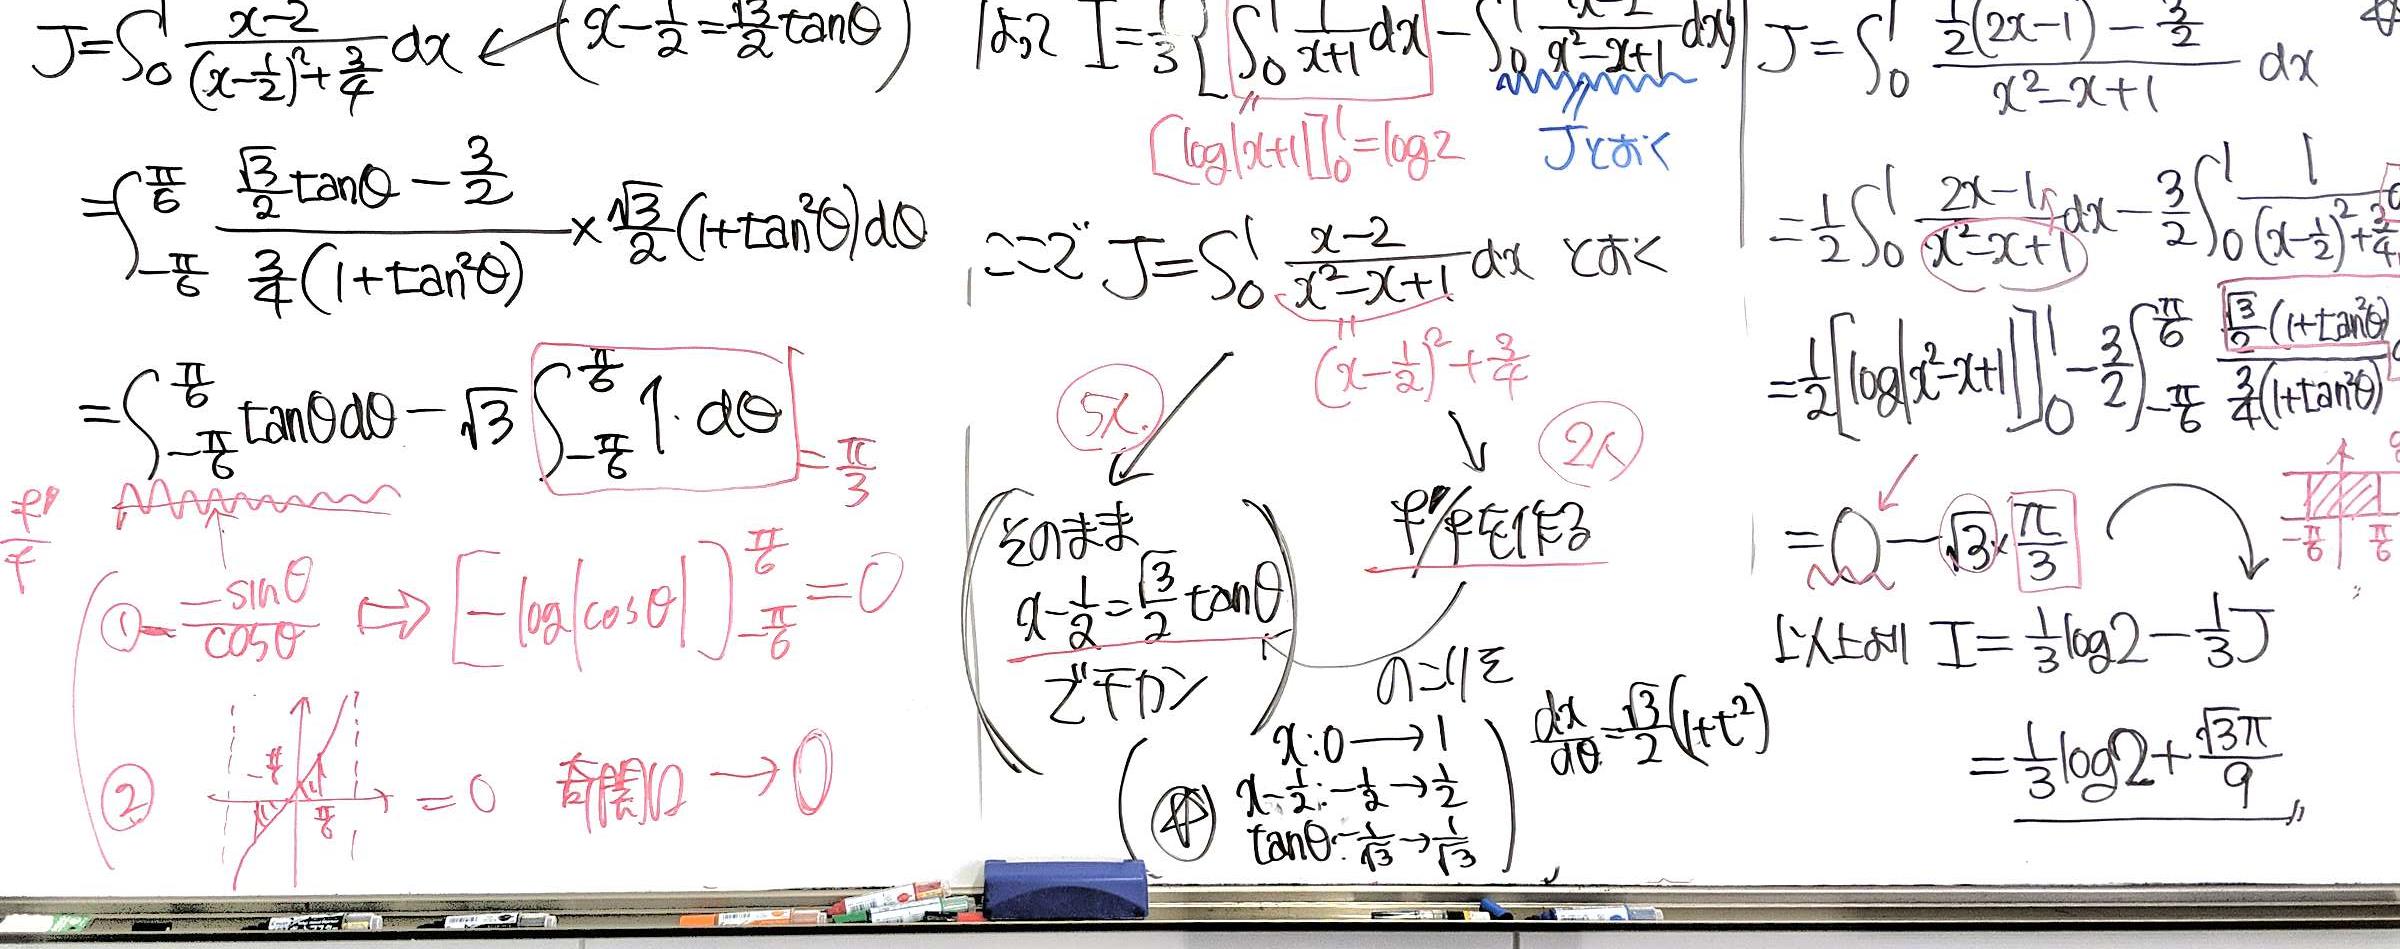 J=∫₀¹ (x-2)/((x-1/2)²+3/4) dx ← (x-1/2=√3/2 tanθ)
=∫_{-π/6}^{π/6} (√3/2 tanθ - 3/2)/(3/4(1+tan²θ)) × √3/2 (1+tan²θ)dθ
=∫_{-π/6}^{π/6} tanθdθ - √3 ∫_{-π/6}^{π/6} 1・dθ = π/3
f'/f
① - (-sinθ)/cosθ ⇨ [-log|cosθ|]_{-π/6}^{π/6} = 0
② -π/6 π/6 = 0 奇関数 → 0
よって I=1/3{∫₀¹ 1/(x+1) dx - ∫₀¹ (x-2)/(x²-x+1) dx}
[log|x+1|]₀¹=log2 Jとおく
ここで J=∫₀¹ (x-2)/(x²-x+1) dx とおく
(x-1/2)²+3/4
そのまま
x-1/2=√3/2 tanθ
でチカン
f'/fを作る
のこりを
x:0→1
x-1/2:-1/2→1/2
tanθ:-1/√3→1/√3
dx/dθ=√3/2(1+t²)
J=∫₀¹ (1/2(2x-1)-3/2)/(x²-x+1) dx
=1/2∫₀¹ (2x-1)/(x²-x+1) dx - 3/2∫₀¹ 1/((x-1/2)²+3/4)
=1/2[log|x²-x+1|]₀¹ - 3/2∫_{-π/6}^{π/6} (√3/2(1+tan²θ))/(3/4(1+tan²θ))
=0-√3×π/3
-π/6 π/6
以上より I=1/3 log2 - 1/3 J
=1/3 log2 + √3π/9